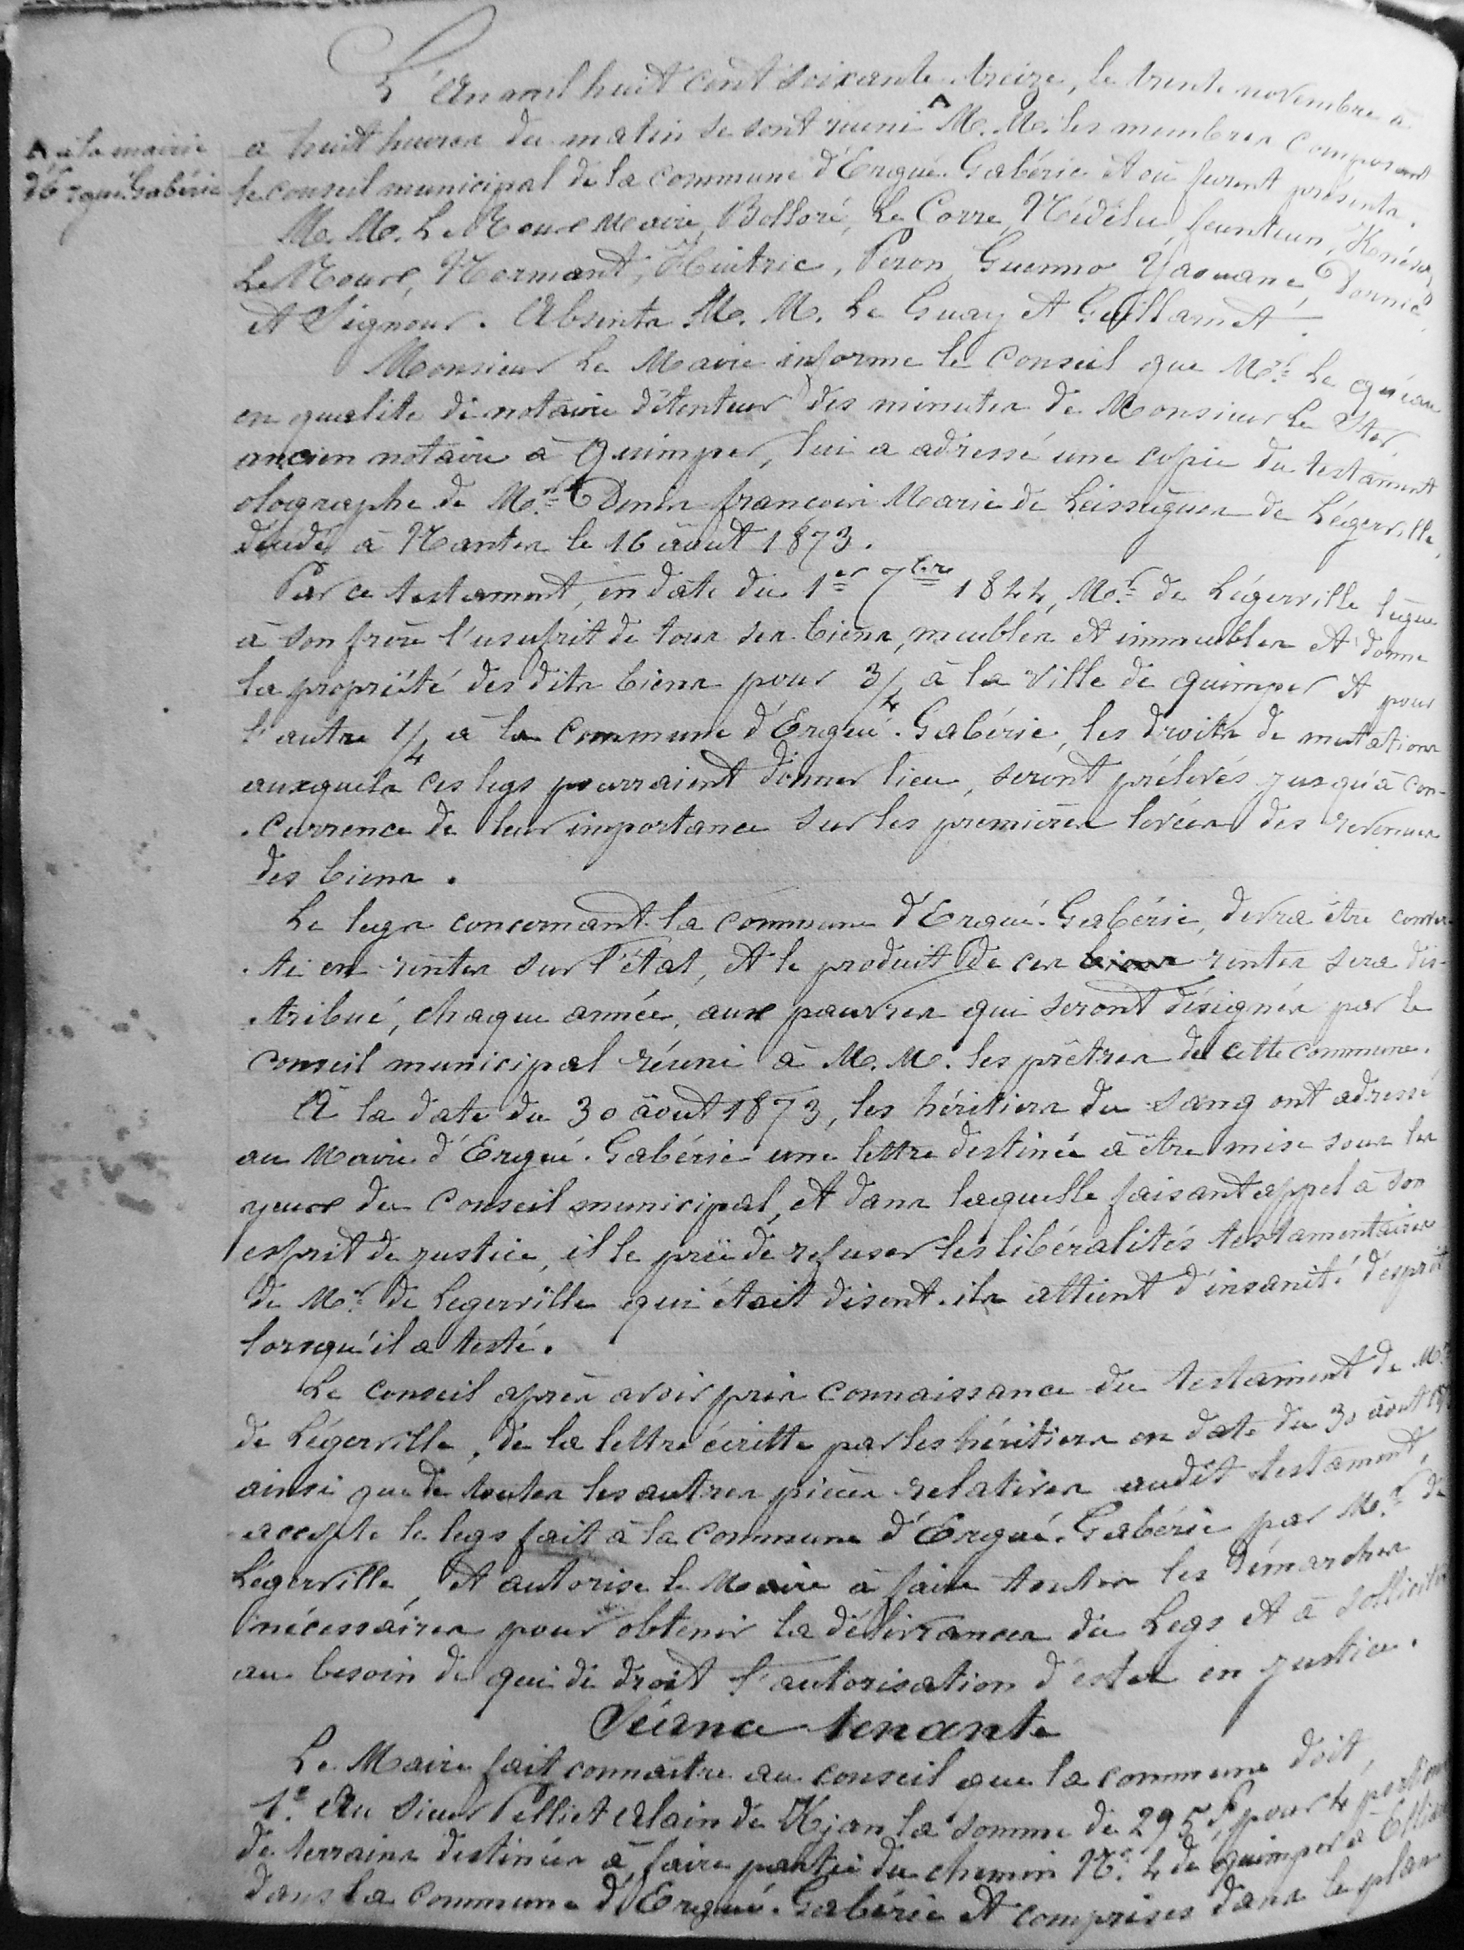 L'An mil huit cent soixante treize, le trente novembre à
a huit heures du matin se sont reuni ^ M. M. les membres composant
^ à la mairie
d'Ergué Gabéric
le conseil municipal de la commune d'Ergué-Gabéric et où furent présents.
M. M. Le Roux Maire, Bolloré, Le Corre, Nédélec, feunteun,
Le Roux, Normant, Huitric, Péron, Guenno Yaouanc,
et Seigneur. Absents M. M. Le Guay et Guillamet.
Monsieur Le Maire informe le Conseil que Mr. Le
en qualite de notaire détenteur des minutes de Monsieur Le
ancien notaire à Quimper, lui a adressé une copie du testament
olographe de Mr. Denis françois Marie de Leissègues de Légerville,
décédé à Nantes le 16 août 1873.
Par ce testament, en date du 1er 7bre 1844, Mr. de Légerville lègue
à son frère l'usufrit de tous ses biens, meubles et immeubles et donne
la propriété des dits biens pour 3/4 à la ville de quimper et pour
l'autre 1/4 à la commune d'Ergué-Gabéric, les droits de mutations
auxquels ces legs pourraient donner lieu, seront prélevés jusqu'à con-
-currence de leur importance sur les premières levées des revenus
des biens.
Le legs concernant la commune d'Ergué-Gabéric, devra être conver-
-ti en rentes sur l'état, et le produit de ces biens rentes sera dis-
-tribué, chaque année, aux pauvres qui seront désignés par le
conseil municipal réuni à M. M. les prêtres de cette commune.
A la date du 30 août 1873, les héritiers du sang ont adressé
au Maire d'Ergué-Gabéric une lettre destinée à être mise sous les
yeux du Conseil municipal, et dans laquelle faisant appel à son
esprit de justice, il le prie de refuser les libéralités testamentaires
de Mr. de Legerville qui était disent-ils atteint d'insanité d'esprit
lorsqu'il a testé.
Le conseil après avoir pris connaissance du testament de Mr.
de Légerville, de la lettre écritte par les héritiers en date du 30 août
ainsi que de toutes les autres pièces relatives audit testament,
accepte le legs fait à la commune d'Ergué-Gabéric par Mr. de
Légerville, et autorise le Maire à faire toutes les démarches
nécessaires pour obtenir la délivrances du Legs et à solliciter
au besoin de qui de droit l'autorisation d'ester en justice.
Séance tenante
Le Maire fait connaître au conseil que la commune doit,
1° Au sieur Pelliet Alain de Kjan la somme de 295f pour 4 portions
de terrains destinés à faire partie du chemin N° 4 de quimper à Elliant
dans la commune d'Ergué-Gabéric et comprises dans le plan